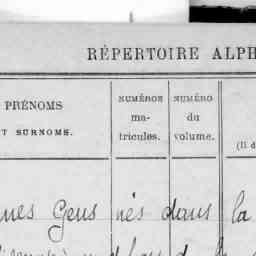 RÉPERTOIRE ALPH
PRÉNOMS
T SURNOMS.
NUMÉROS
ma-
tricules.
NUMÉRO
du
volume.
(Il d
unes Gens nés dans la